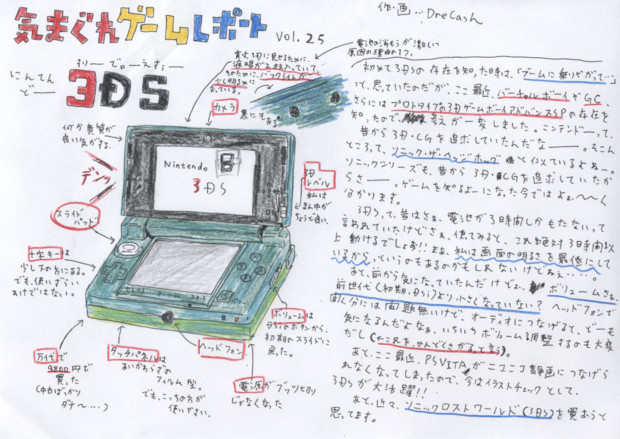 気まぐれゲームレポート vol.25
作・画…DreCash
にんてんどー
すりーでぃーえす
3DS
電池の消もうが激しい
原因の理由の1つ。
カメラ
裏にもある。
何か貴賓が
良い気がする。
デンッ
Nintendo
3DS
3D
レベル
私は
まん中が
ちょうど良い。
スライド
パッド
十字キーは
少し下の方にある。
でも、使いづらい
わけではない。
万代で
9800円で
買った
(中古ばっかり
ダナ〜…)
タッチパネルは
あいかわらずの
フィルム型。
でも、こっちの方が
使いやすい。
ヘッドフォン
電源がブッツリ切り
じゃなくなった
ボリュームは
DSiのボタンから、
初期のスライドに
戻った。
初めて3DSの存在を知った時は、「ゲームに乗りがって…」
って、思っていたのだが、ここ最近、バーチャルボーイやGC、
さらにはプロトタイプの3DゲームボーイアドバンスSPの存在を
知ったので、考えが一変しました。ニンテンドーって、
昔から3D・CGを追求していたんだなー。そんな
ところって、ソニック・ザ・ヘッジホッグと似ているよねー。
ソニックシリーズも、昔から3D・CGを追求していたか
らさー。ゲームを知るようになった今ではよぉ〜〜く
分かります。
3DSって、昔はさぁ、電池が3時間しかもたないって
言われていたけどさぁ、使ってみると、これ絶対3時間以
上動けるでしょ!!まぁ、私は画面の明るさを最低にして
いるから、っていうのもあるのかもしれないけどねぇ…。
あと、前から気になっていたんだけど、ボリュームさぁ、
前世代(初期、DSi)より小さくなっていない?ヘッドフォンで
聞く分には問題無いけど、オーディオにつなげると、どーも
気になるんだよなぁ。いちいちボリューム調整するのも大変
だし(これを、めんどくさがると言う)。
あと、ここ最近、PSVITAがニコニコ静画につなげら
れなくなってしまったので、今はイラストチェックとして、
3DSが大活躍!!
あと、近々、ソニックロストワールド(3DS)を買おうと
思ってます。